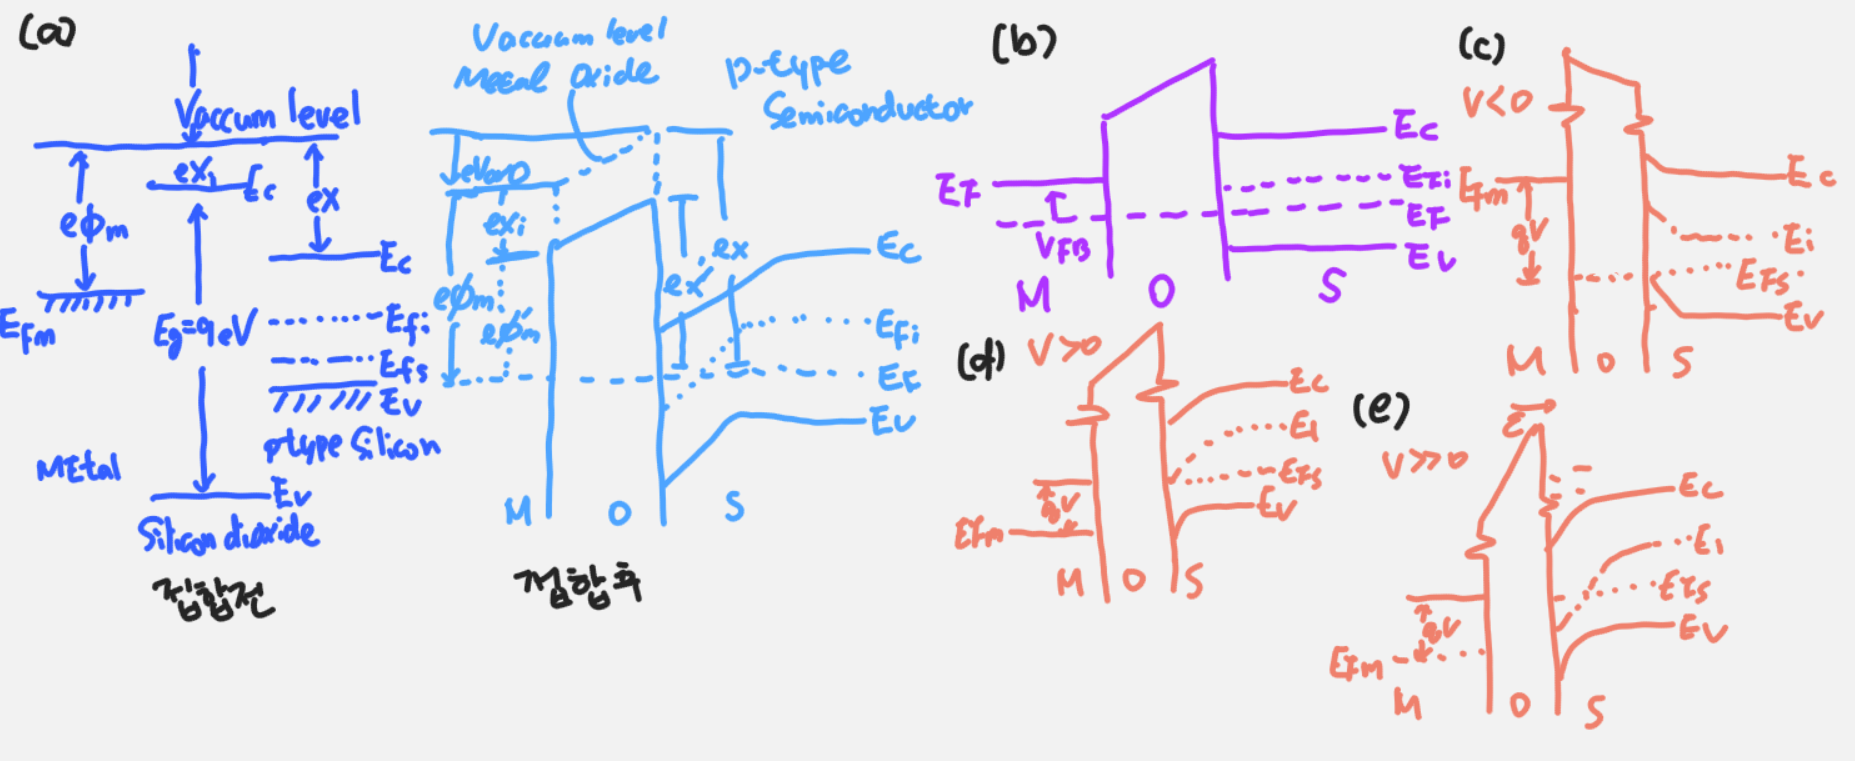 (a)
Vaccum level
eχ₁ Ec
eχ
eϕm
Ec
EFm
Eg=9eV
Efi
Efs
Ev
ptype Silicon
METal
Ev
Silicon dioxide
접합전
Vacuum level
Metal Oxide
p-type
Semiconductor
eχi
eχ
eχ'
Ec
eϕm
eϕ'm
EFi
EF
Ev
M O S
접합후
(b)
Ec
EF
EFi
EF
VFB
Ev
M O S
(c)
V<0
EFm
Ec
qV
Ei
EFs
Ev
M O S
(d)
V>0
Ec
Ei
EFs
qV
Ev
EFm
M O S
(e)
ℰ
V>>0
Ec
Ei
EFs
qV
Ev
EFm
M O S